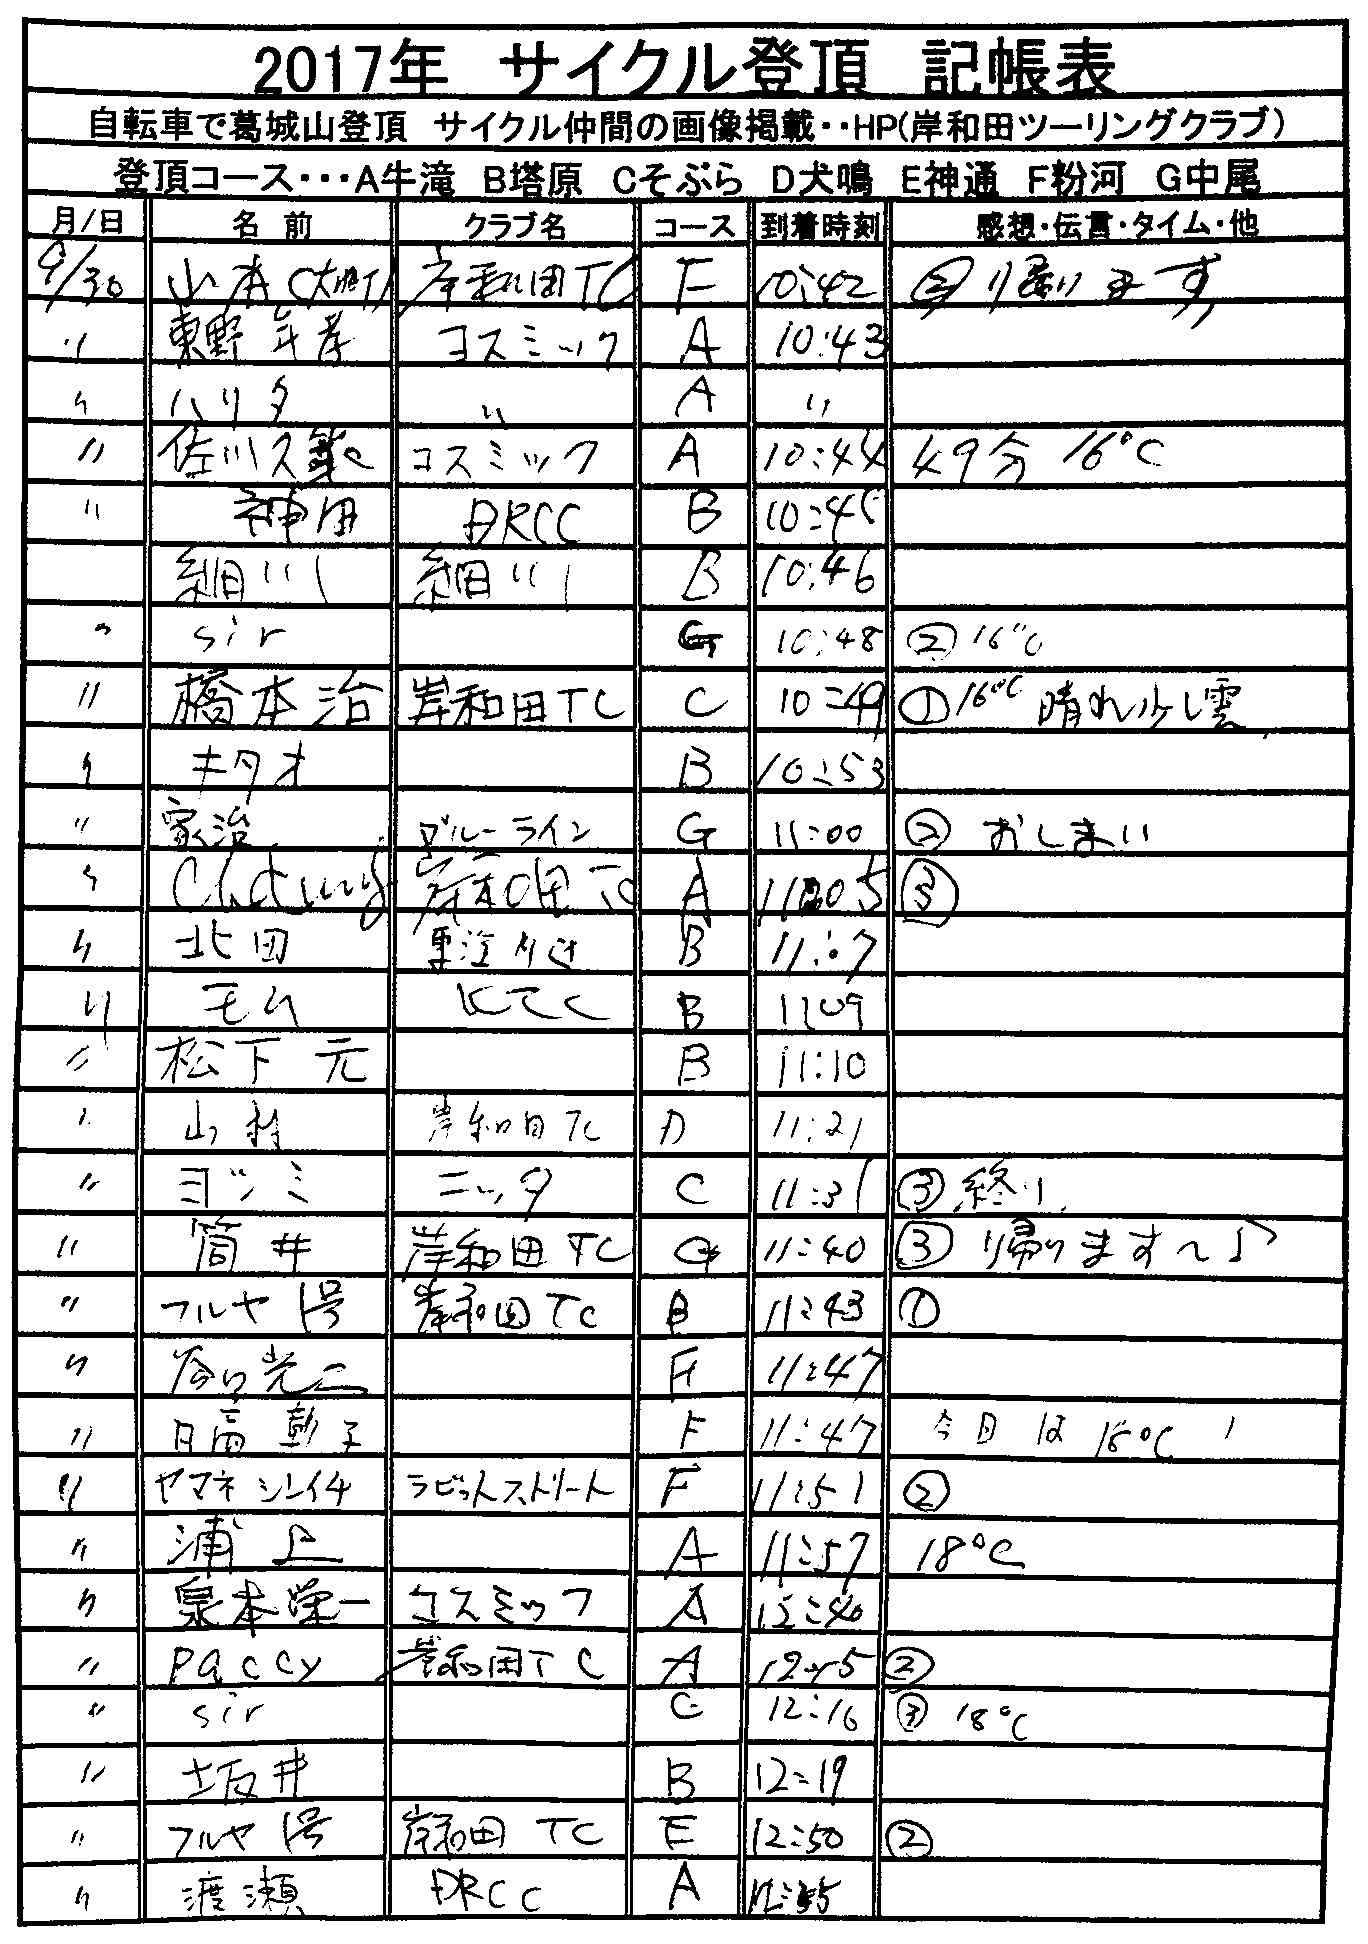 2017年 サイクル登頂 記帳表
自転車で葛城山登頂 サイクル仲間の画像掲載‥HP(岸和田ツーリングクラブ)
登頂コース･･･A牛滝 B塔原 Cそぶら D犬鳴 E神通 F粉河 G中尾
月/日 名前 クラブ名 コース 到着時刻 感想・伝言・タイム・他
9/30 山本 岸和田TC F 10:42 ② 帰ります
〃 東野 年孝 コスミック A 10:43
〃 ハリタ 〃 A 〃
〃 佐川久 コスミック A 10:44 49分 16℃
〃 神田 DRCC B 10:45
細川 細川 B 10:46
〃 sir G 10:48 ② 16℃
〃 橋本治 岸和田TC C 10:49 ① 16℃ 晴れ少し雲
〃 キタオ B 10:53
〃 家治 ブルーライン G 11:00 ② おしまい
〃 岸和田TC A 11:05 ③
〃 北田 B 11:07
〃 モム KTC B 11:09
〃 松下 元 B 11:10
〃 山村 岸和田TC D 11:21
〃 ヨツミ ニッタ C 11:31 ③ 終り
〃 筒井 岸和田TC G 11:40 ③ 帰ります～♪
〃 フルヤ1号 岸和田TC B 11:43 ①
〃 谷口光二 F 11:47
〃 日高 彰子 F 11:47 今日は 18℃ !
〃 ヤマネ シンイチ ラビットストリート F 11:51 ②
〃 浦上 A 11:57 18℃
〃 泉本栄一 コスミック A 12:40
〃 paccy 岸和田TC A 12:15 ②
〃 sir C 12:16 ③ 18℃
〃 坂井 B 12:19
〃 フルヤ1号 岸和田TC E 12:50 ②
〃 渡瀬 DRCC A